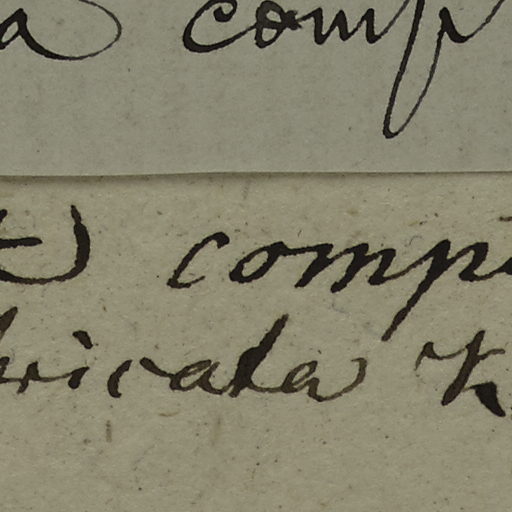 a comp
t) comp
bricata K